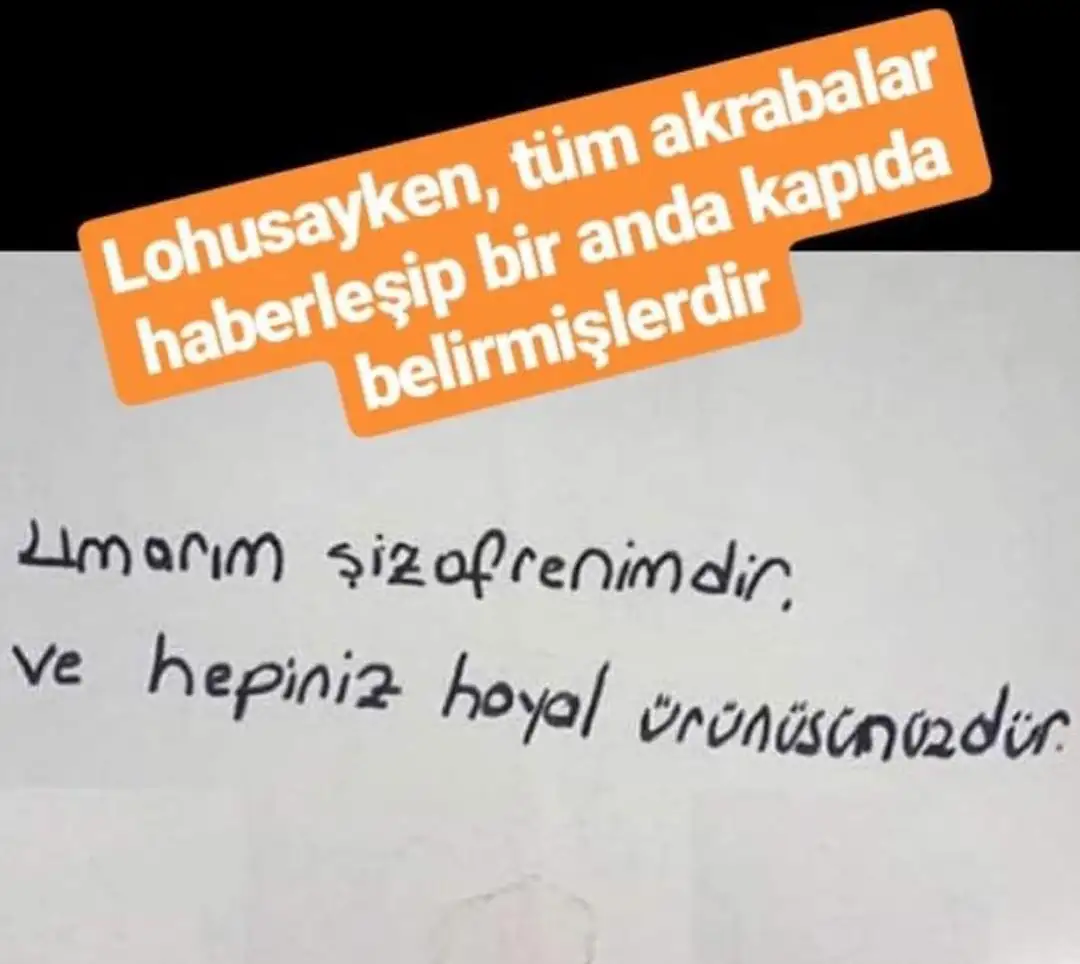 Lohusayken, tüm akrabalar
haberleşip bir anda kapıda
belirmişlerdir
Umarım şizofrenimdir.
ve hepiniz hayal ürünüsünüzdür.